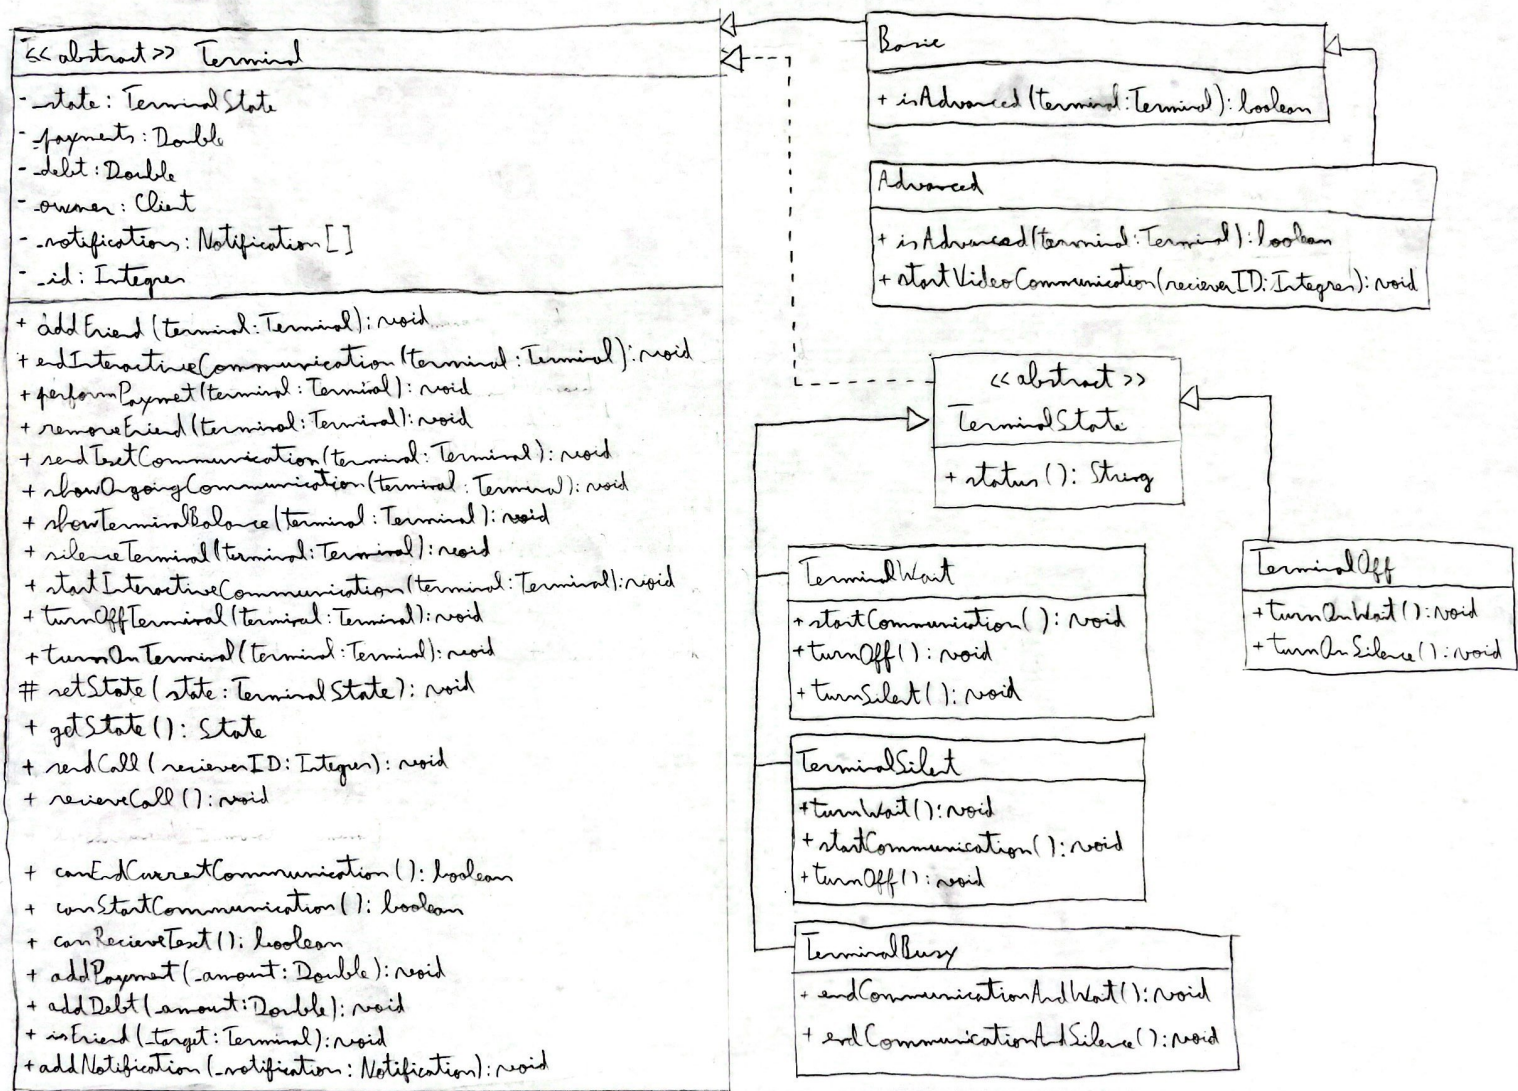 <<abstract>> Terminal
- _state: TerminalState
- _payments: Double
- _debt: Double
- _owner: Client
- _notifications: Notification[]
- _id: Integer
+ addFriend(terminal: Terminal): void
+ endInteractiveCommunication(terminal: Terminal): void
+ performPaymet(terminal: Terminal): void
+ removeFriend(terminal: Terminal): void
+ sendTextCommunication(terminal: Terminal): void
+ showOngoingCommunication(terminal: Terminal): void
+ showTerminalBalance(terminal: Terminal): void
+ silenceTerminal(terminal: Terminal): void
+ startInteractiveCommunication(terminal: Terminal): void
+ turnOffTerminal(terminal: Terminal): void
+ turnOnTerminal(terminal: Terminal): void
# setState(state: TerminalState): void
+ getState(): State
+ sendCall(recieverID: Integer): void
+ recieveCall(): void
+ canEndCurrentCommunication(): boolean
+ canStartCommunication(): boolean
+ canRecieveText(): boolean
+ addPayment(_amount: Double): void
+ addDebt(_amount: Double): void
+ isFriend(_target: Terminal): void
+ addNotification(_notification: Notification): void
Basic
+ isAdvanced(terminal: Terminal): boolean
Advanced
+ isAdvanced(terminal: Terminal): boolean
+ startVideoCommunication(recieverID: Integer): void
<<abstract>>
TerminalState
+ status(): String
TerminalWait
+ startCommunication(): void
+ turnOff(): void
+ turnSilent(): void
TerminalOff
+ turnOnWait(): void
+ turnOnSilence(): void
TerminalSilent
+ turnWait(): void
+ startCommunication(): void
+ turnOff(): void
TerminalBusy
+ endCommunicationAndWait(): void
+ endCommunicationAndSilence(): void